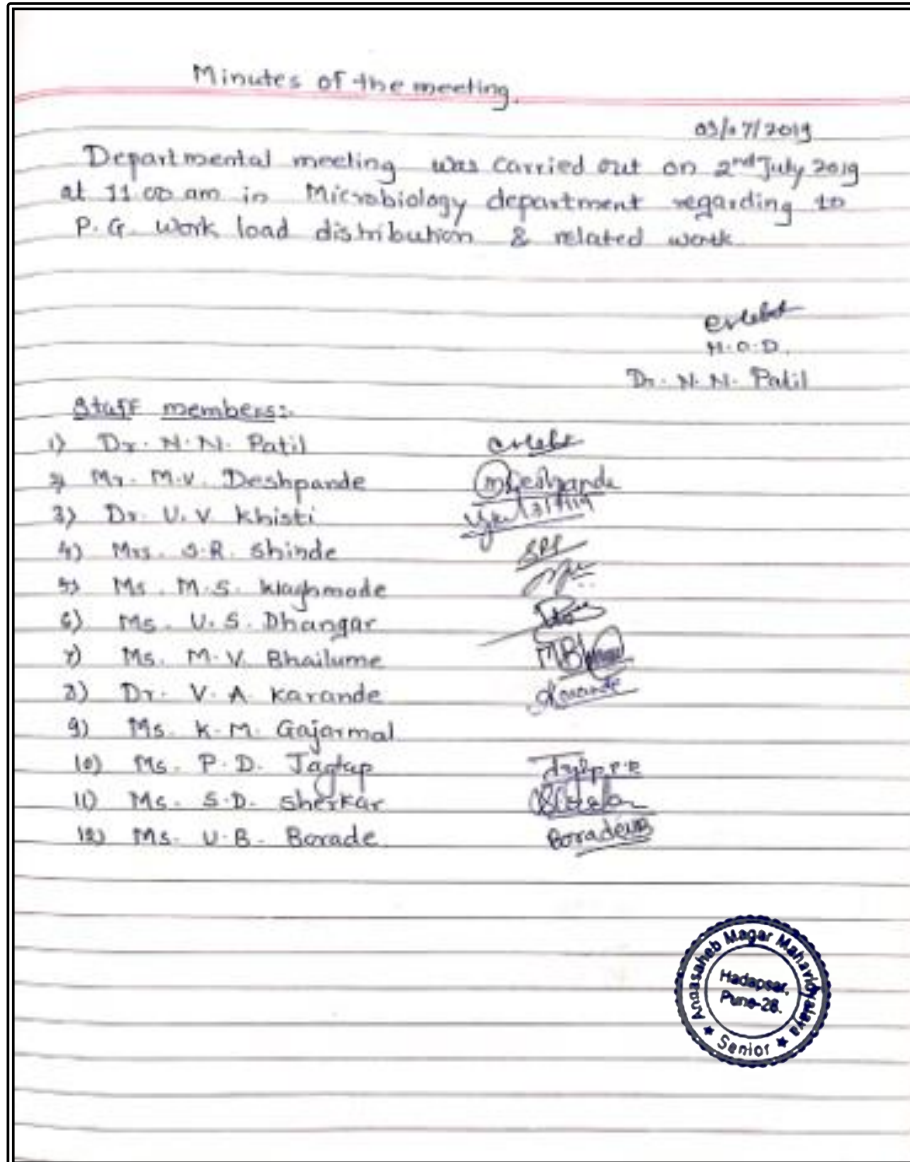 Minutes of the meeting.
03/07/2019
Departmental meeting was carried out on 2nd July 2019
at 11.00 am in Microbiology department regarding to
P.G. work load distribution & related work.
H.O.D.
Dr. N. N. Patil
Staff members:-
1) Dr. N. N. Patil
2) Mr. M.V. Deshpande mDeshpande
3) Dr. U. V. Khisti
4) Mrs. S.R. Shinde
5) Ms. M.S. Waghmode
6) Ms. U.S. Dhangar
7) Ms. M.V. Bhailume
8) Dr. V. A. Karande Karande
9) Ms. K.M. Gajarmal
10) Ms. P.D. Jagtap
11) Ms. S.D. Sherkar
12) Ms. U.B. Borade BoradeUB
Annasaheb Magar Mahavidyalaya
Hadapsar,
Pune-28.
★ Senior ★